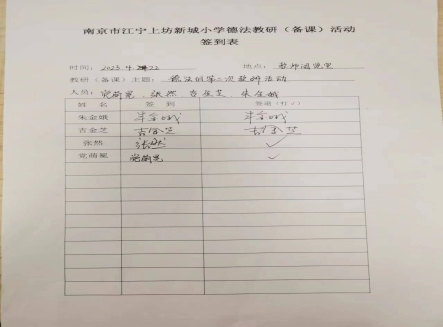 南京市江宁上坊新城小学德法教研（备课）活动
签到表
时间：2023.4. 地点：教师阅览室
教研（备课）主题：德法组第二次教研活动
人员：党萌冕、张然、吉金芝、朱金娥
姓 名 签 到 签退（打√）
朱金娥 朱金娥 朱金娥
吉金芝 吉金芝 吉金芝
张然 张然 ✓
党萌冕 党萌冕 ✓